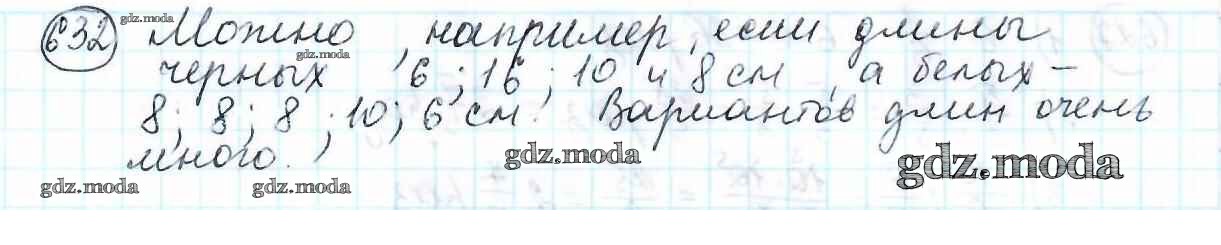 632 Можно, например, если длины
черных 6; 16; 10 и 8 см, а белых -
8; 8; 8; 10; 6 см. Вариантов длин очень
много.
gdz.moda
gdz.moda
gdz.moda
gdz.moda
gdz.moda
gdz.moda
gdz.moda